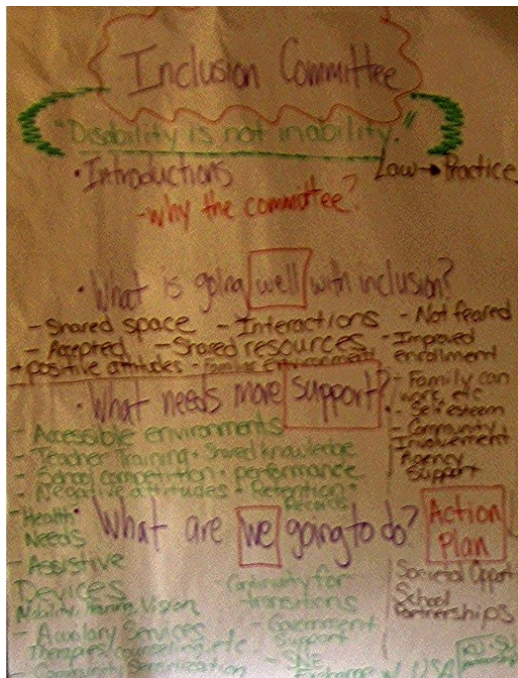 Inclusion Committee
"Disability is not inability."
Law → Practice
• Introductions
- why the committee?
• What is going well with inclusion?
- Shared space
- Interactions
- Not feared
- Accepted
- Shared resources
- Improved enrollment
+ positive attitudes
- Familiar environment
- Family can work, etc
- Self esteem
- Community Involvement
Agency Support
• What needs more support?
- Accessible environments
- Teacher Training + Shared knowledge
- School competition + performance
- Negative attitudes - Retention +
Records
- Health Needs
• What are we going to do?
Action Plan
- Assistive Devices
Mobility, Hearing, Vision
- Auxilary Services
Therapies, counseling, etc.
- Community Sensitization
- Continuity for transitions
- Government Support
- SNE
Exchange w/ USA
Societal Opport.
School Partnerships